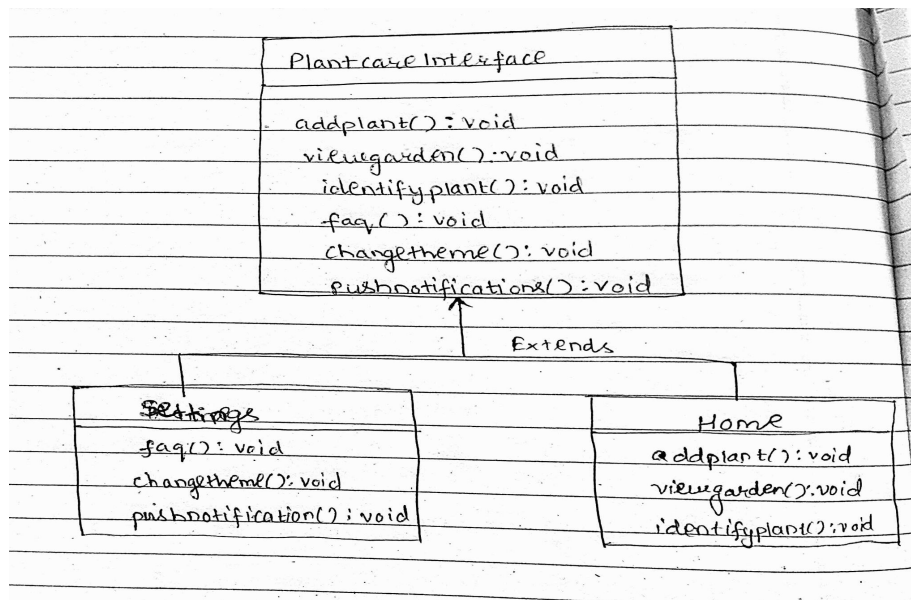 Plantcare Interface
addplant() : void
viewgarden() : void
identifyplant() : void
faq() : void
changetheme() : void
pushnotifications() : void
Extends
Settings
faq() : void
changetheme() : void
pushnotification() : void
Home
addplant() : void
viewgarden() : void
identifyplant() : void